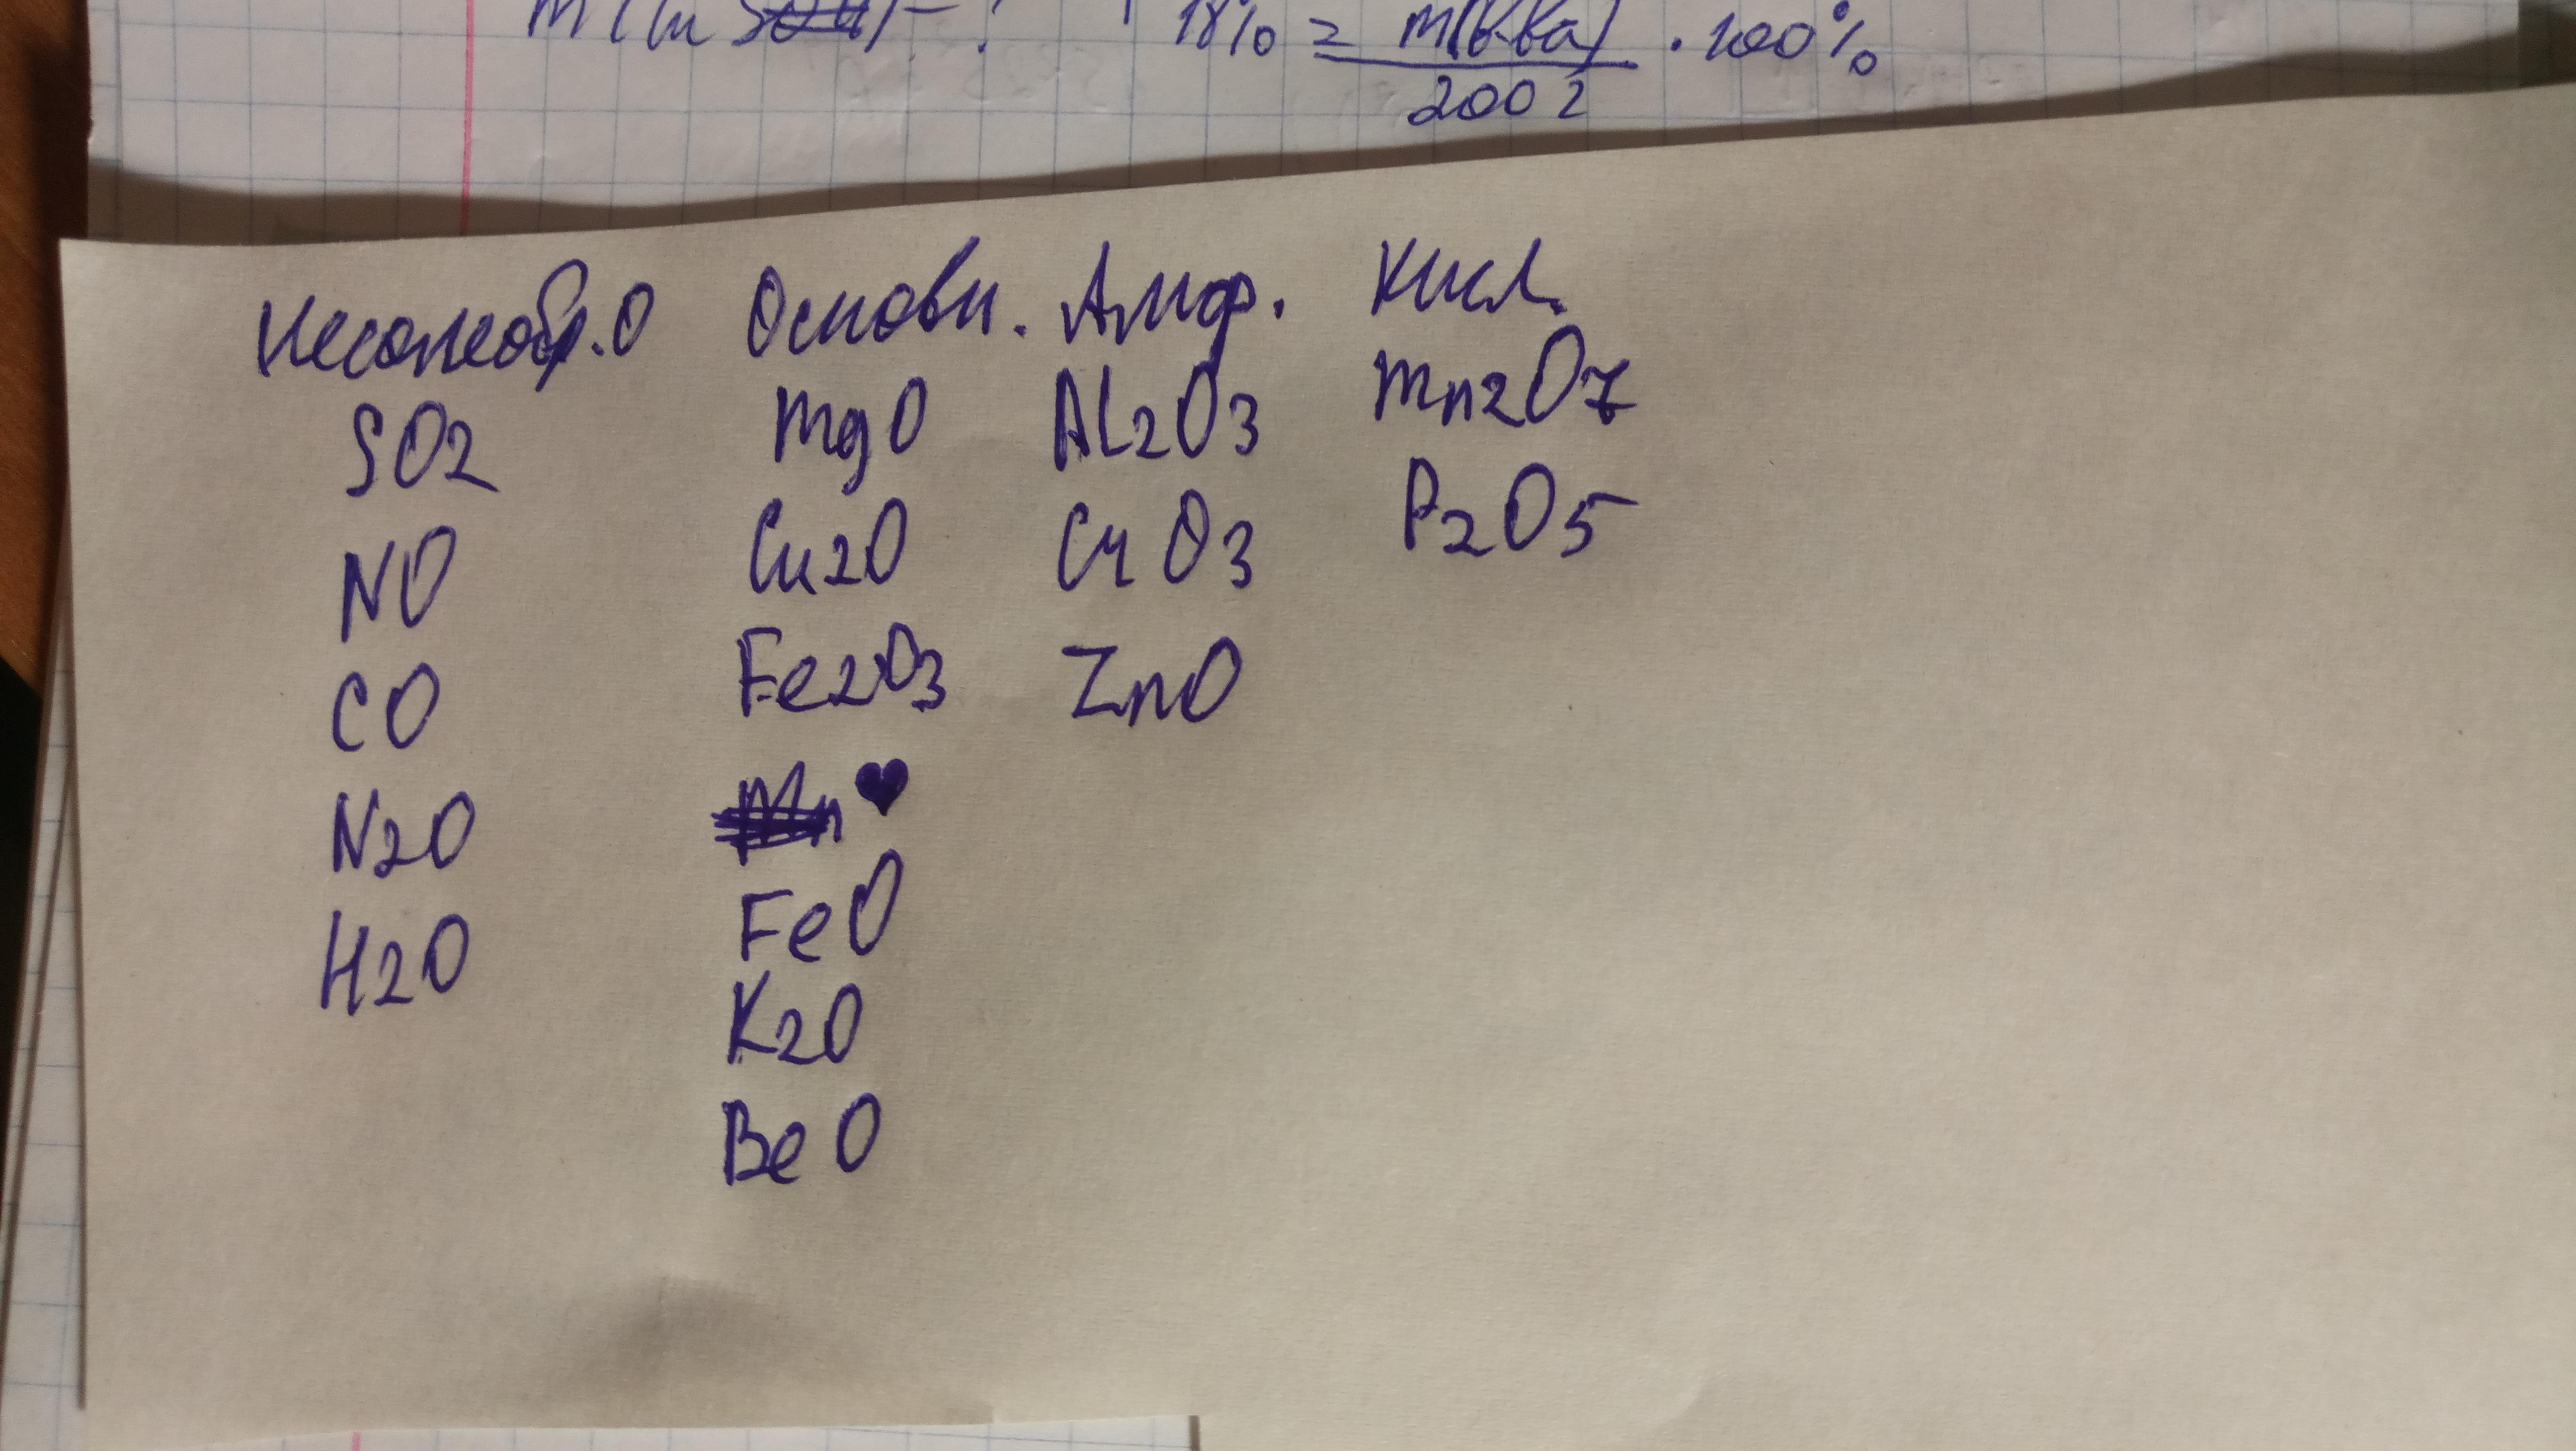 m(Cu SO4) - ?
18% = m(в-ва) / 200 г · 100%
Несолеобр. O Основн. Амф. Кисл.
SO2 MgO Al2O3 Mn2O7
NO Cu2O CrO3 P2O5
CO Fe2O3 ZnO
N2O Mn ♥
H2O FeO
K2O
BeO